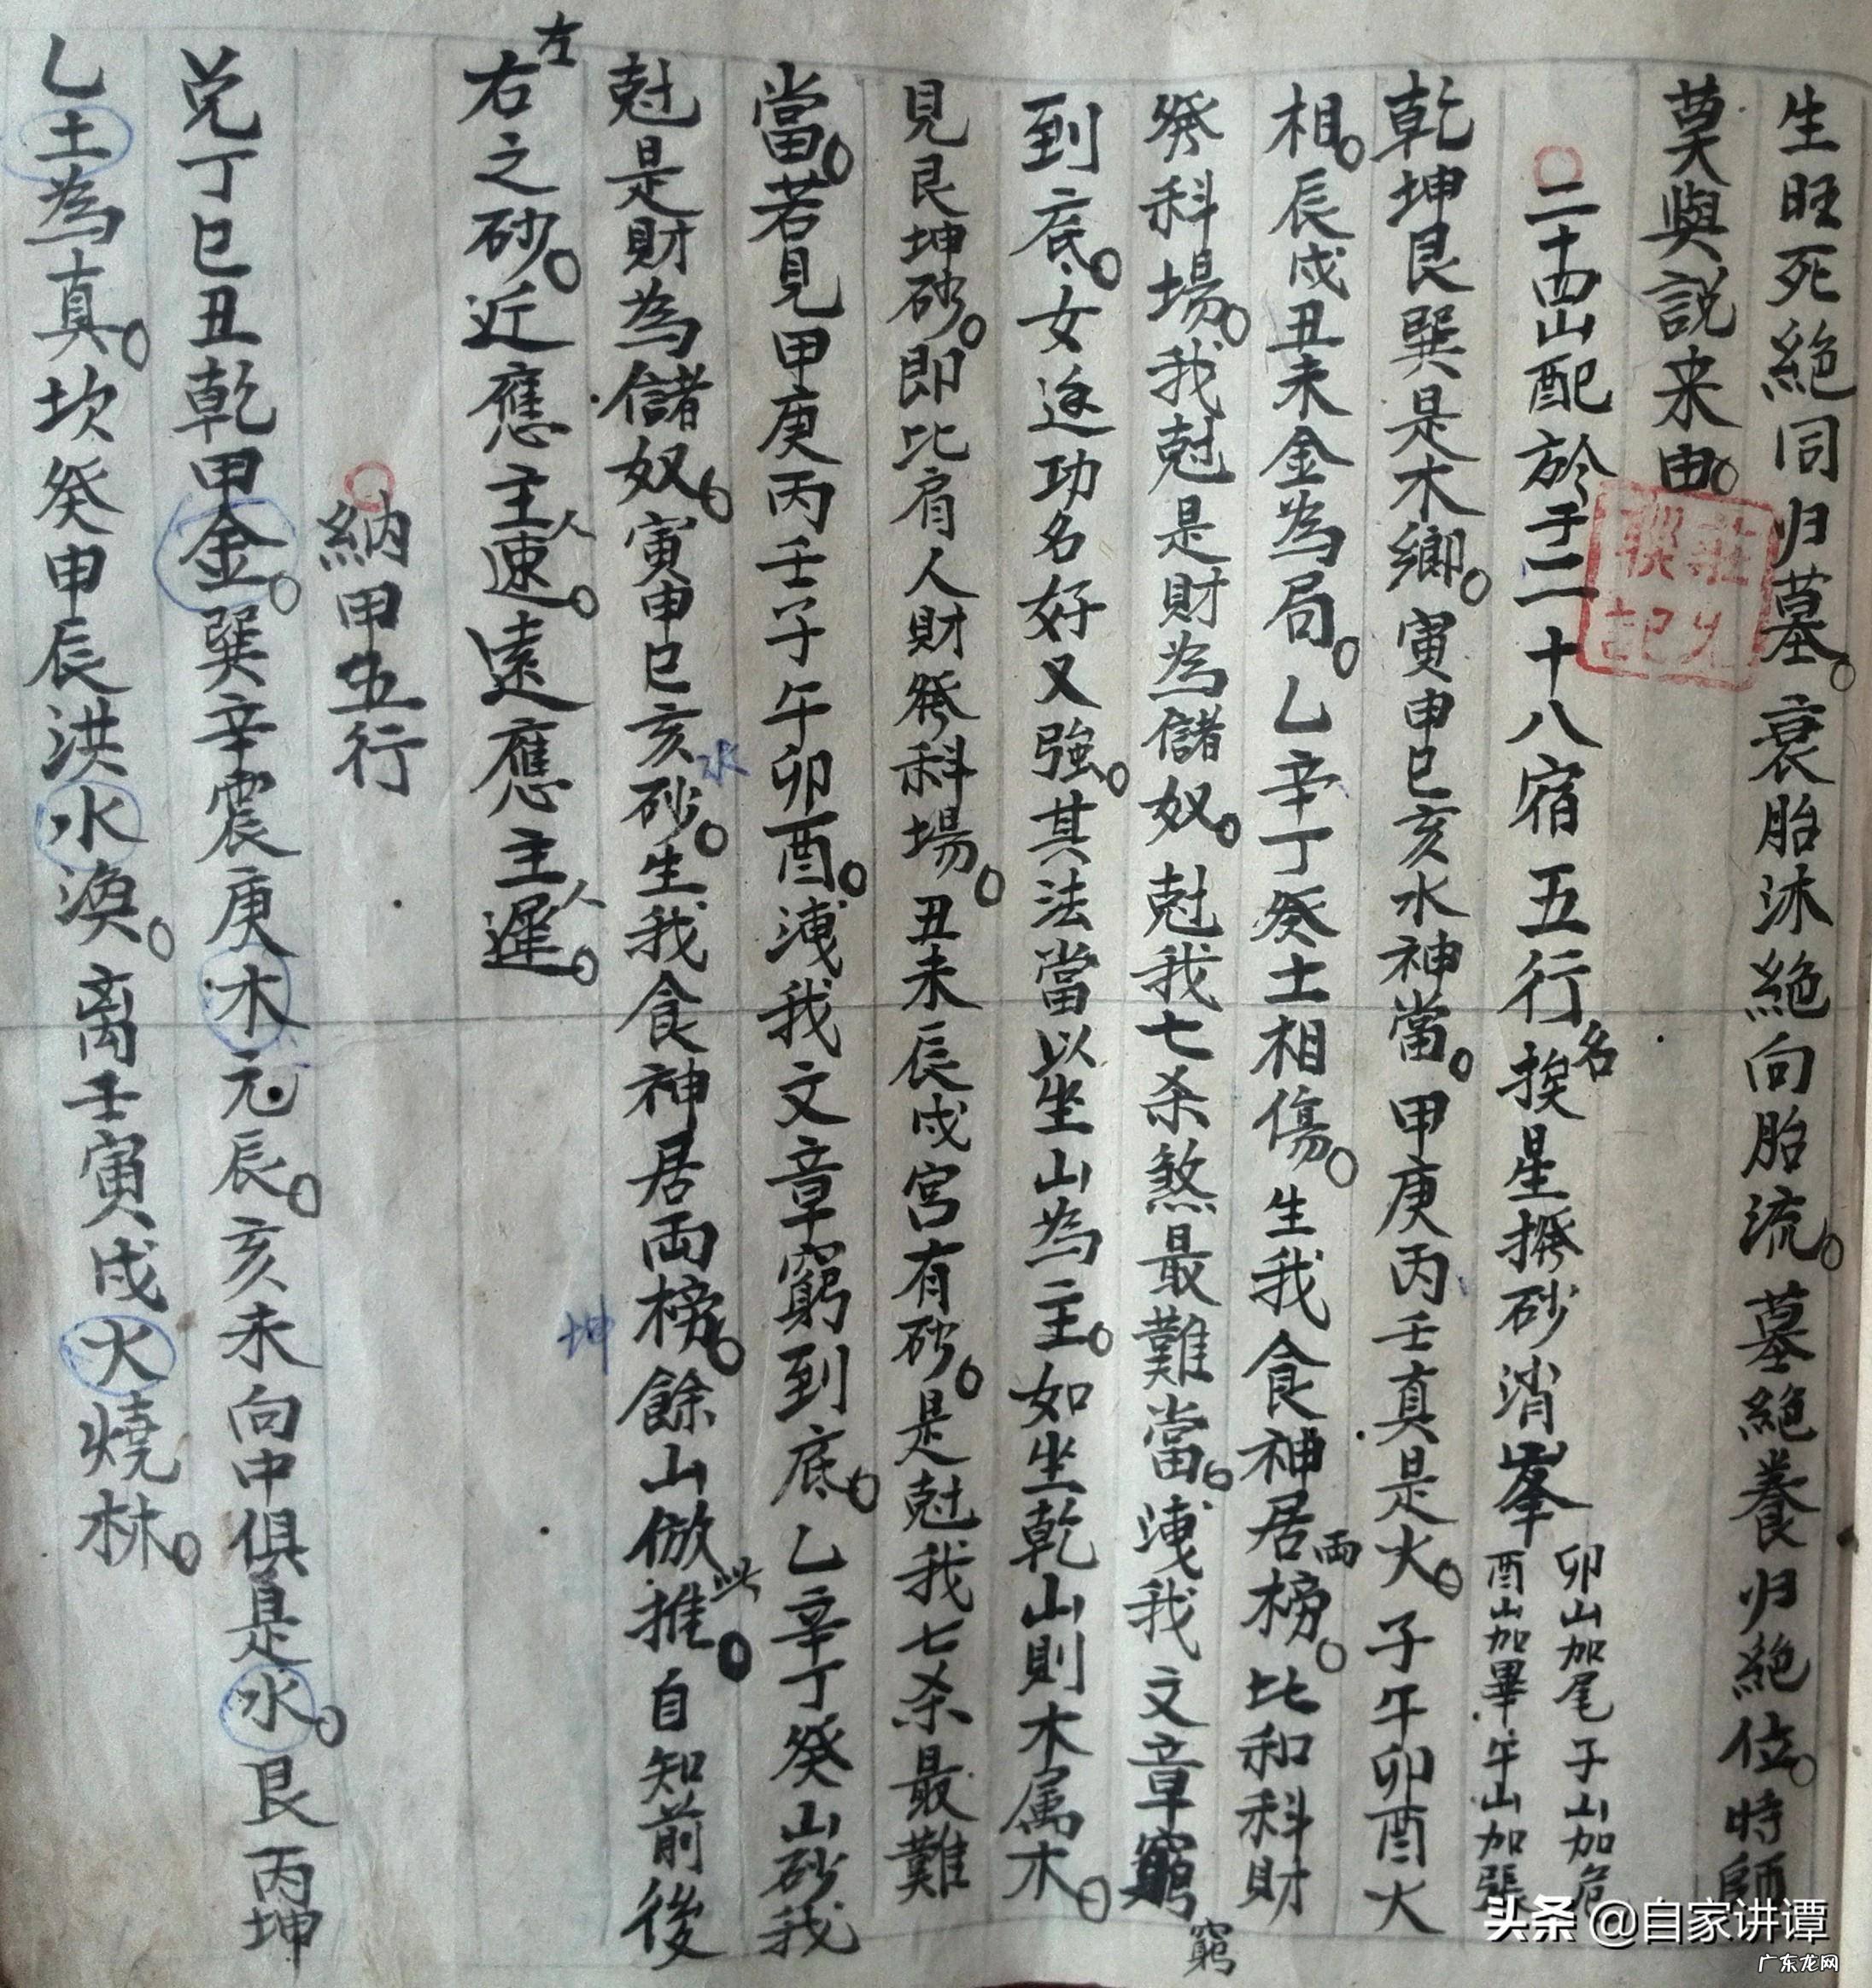 生旺死絕同归墓。衰胎沐絕向胎流。墓絕養归絕位。時師
莫與説来由。
二十四山配於于二十八宿五行名挨星撥砂消峯
卯山加尾子山加危
酉山加畢午山加張
乾坤艮巽是木鄉。寅申巳亥水神當。甲庚丙壬真是火。子午卯酉火
相。辰戌丑未金為局。乙辛丁癸土相傷。生我食神居兩榜。比和科財
發科場。我尅是財為儲奴。尅我七杀煞最難當。洩我文章窮
窮
到底。女途功名好又強。其法當以坐山為主。如坐乾山則木属木。
見艮坤砂。即比肩人財發科場。丑未辰戌宮有砂。是尅我七杀最難
當。若見甲庚丙壬子午卯酉。洩我文章窮到底。乙辛丁癸山砂我
尅是財為儲奴。寅申巳亥砂。生我食神居両榜。餘山倣此推。自知前後
水
坤
左右之砂。近應主人速。遠應主人遲。
納甲五行
兌丁巳丑乾甲金。巽辛震庚木元辰。亥未向中俱是水。艮丙坤
乙土為真。坎癸申辰洪水渙。离壬寅戌火燒林。
头条 @自家讲谭
广东龙网